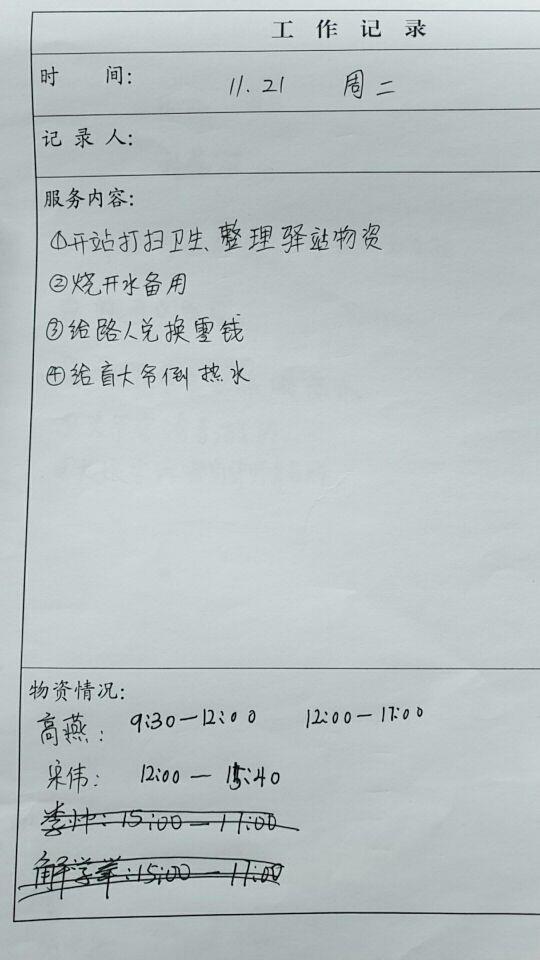 工作记录
时 间: 11.21 周二
记录人:
服务内容:
①开站打扫卫生、整理驿站物资
②烧开水备用
③给路人兑换零钱
④给盲大爷倒热水
物资情况:
高燕: 9:30—12:00 12:00—17:00
宋伟: 12:00—15:40
李帅:15:00—17:00
解学举:15:00—17:00